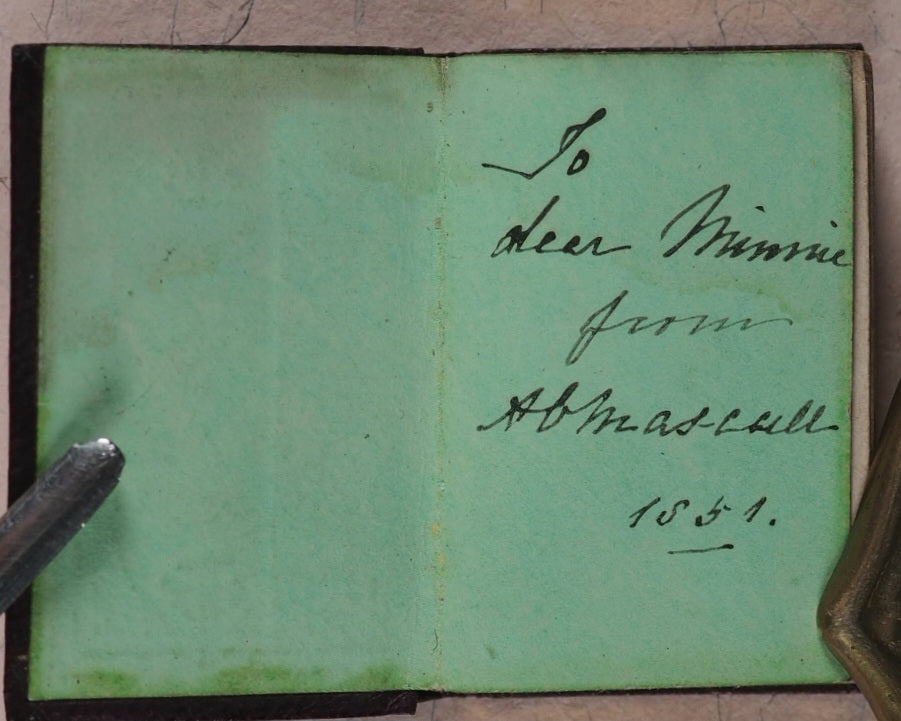 To
dear Minnie
from
AbMascall
1851.